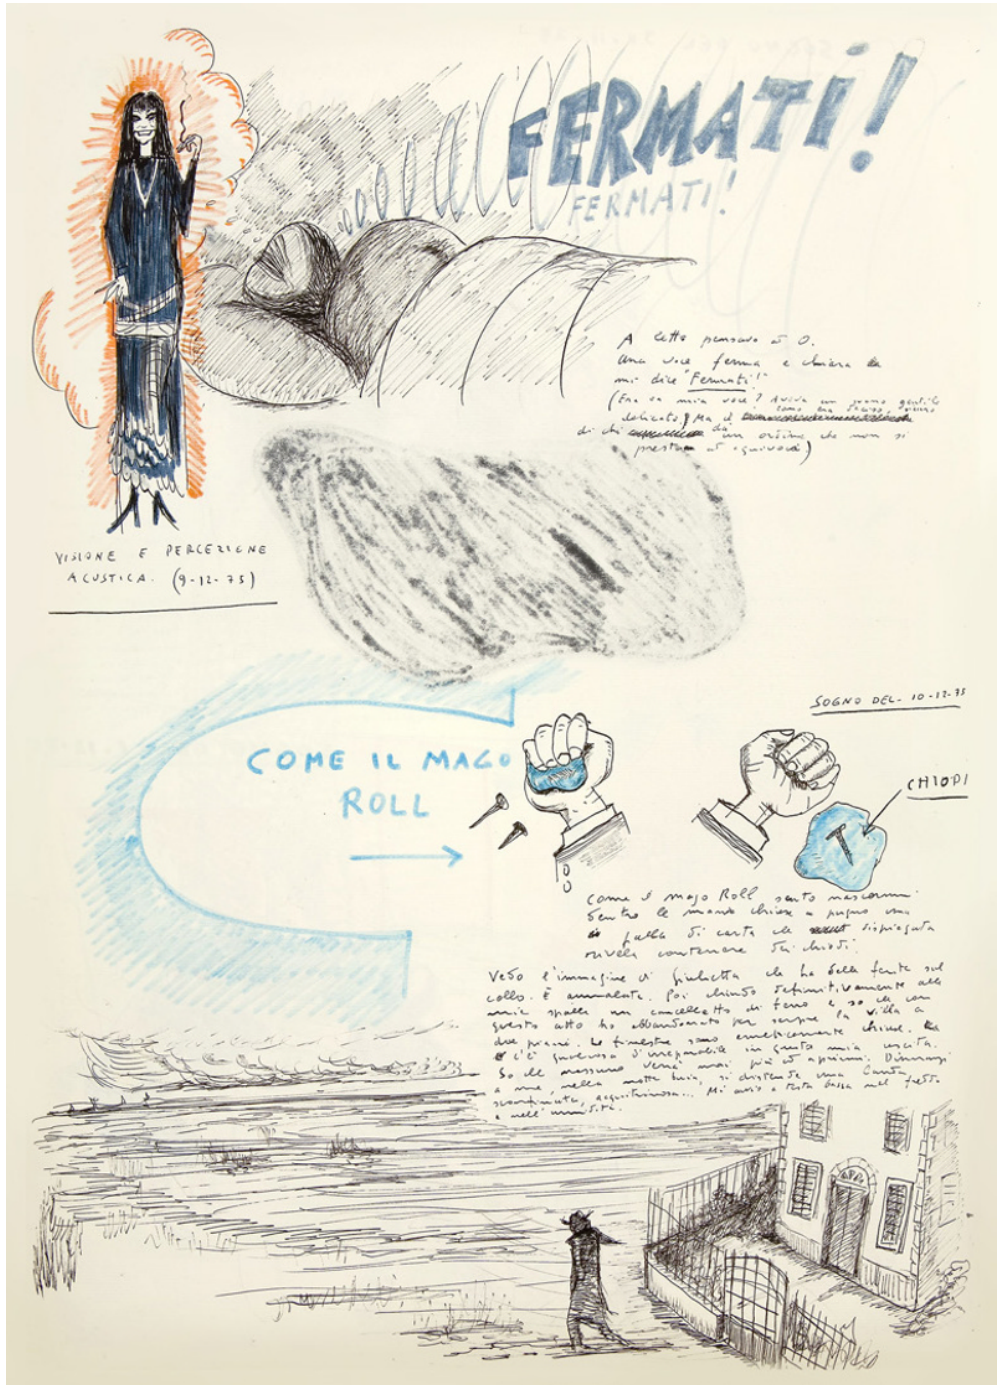 FERMATI!
FERMATI!
A letto pensavo a O.
Una voce ferma e chiara
mi dice "Fermati!"
(Era la mia voce? Aveva un suono gentile
delicato, Ma
come una
di chi dà un ordine che non si
presta ad equivoci.)
VISIONE E PERCEZIONE
ACUSTICA. (9-12-75)
SOGNO DEL 10-12-75
COME IL MAGO
ROLL
CHIODI
Come il mago Roll sento nascermi
dentro le mani chiuse a pugno una
palla di carta che dispiegata
rivela contenere dei chiodi.
Vedo l'immagine di Giulietta che ha delle ferite sul
collo. È ammalata. Poi chiudo definitivamente alle
mie spalle un cancelletto di ferro e so che con
questo atto ho abbandonato per sempre la villa a
due piani. Le finestre sono ermeticamente chiuse.
c'è qualcosa d'irreparabile in questa mia uscita.
So che nessuno verrà mai più ad aprirmi. Dinnanzi
a me nella notte buia, si distende una landa
sconfinata, acquitrinosa... Mi avvio a testa bassa nel freddo
e nell'umidità.